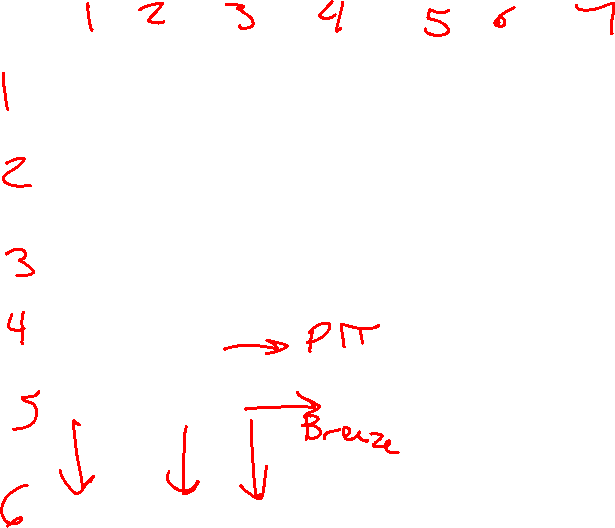 1 2 3 4 5 6 7
1
2
3
4 PIT
5 Breeze
6